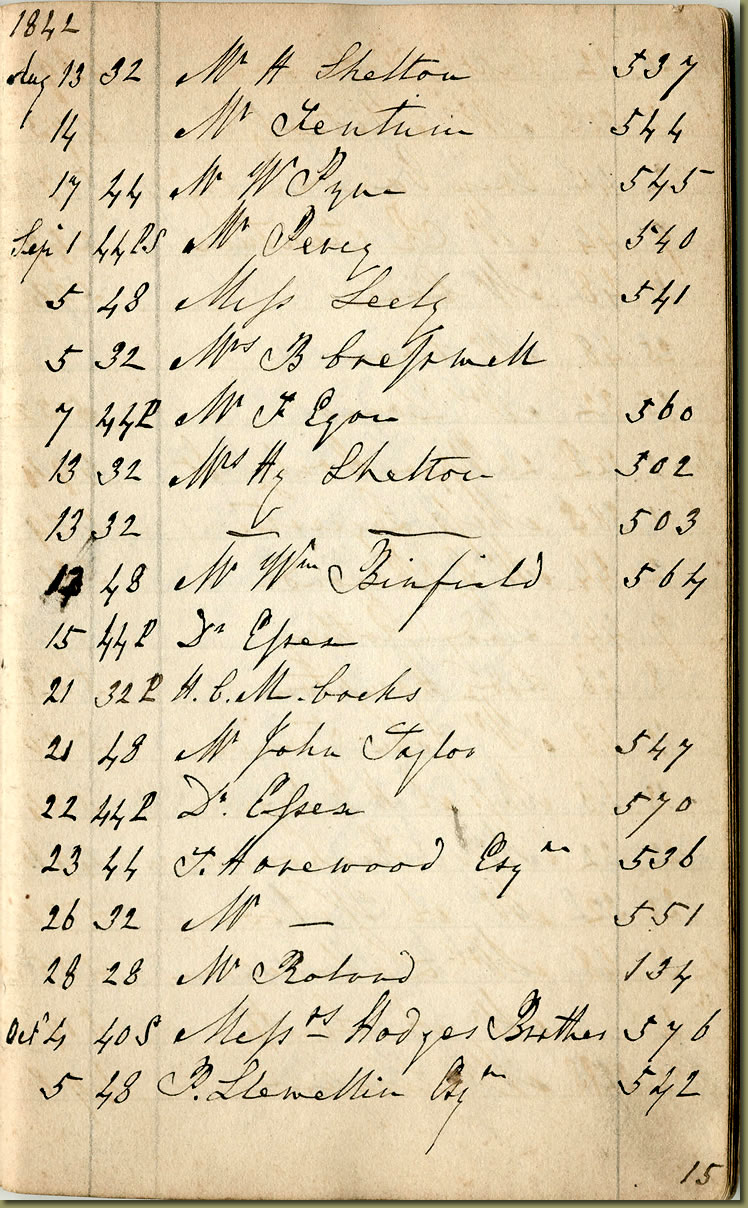 1842
Aug 13 32 Mr H Shelton 537
14 Mr Fentum 544
17 44 Mr W Pyne 545
Sep 1 44PS Mr Percy 540
5 48 Miss Seely 541
5 32 Mrs B Cresswell
7 44P Mr F Egan 560
13 32 Mrs Hy Shelton 502
13 32 — — 503
48 Mr Wm Binfield 564
15 44P Dr Essex
21 32P H. C. M. Cocks
21 48 Mr John Taylor 547
22 44P Dr. Essex 570
23 44 T. Harewood Esqre 536
26 32 Mr — 551
28 28 Mr Roland 134
Oct 4 40S Messrs Hodges Brothers 576
5 48 P. Llewellin Esqre 542
15